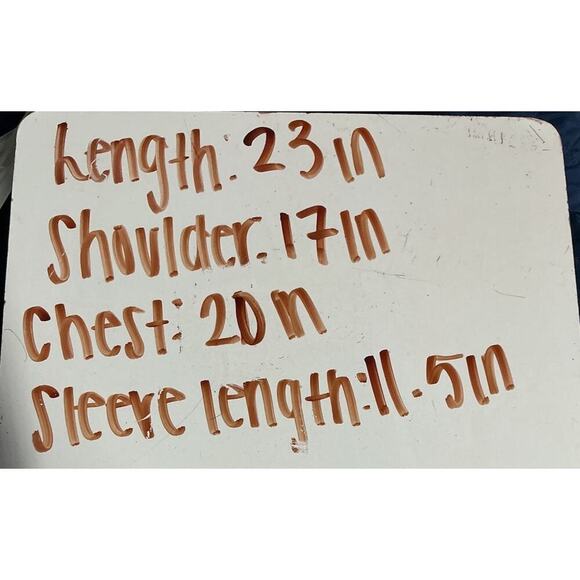 Length: 23in
Shoulder. 17in
Chest: 20in
Sleeve length: 11.5in